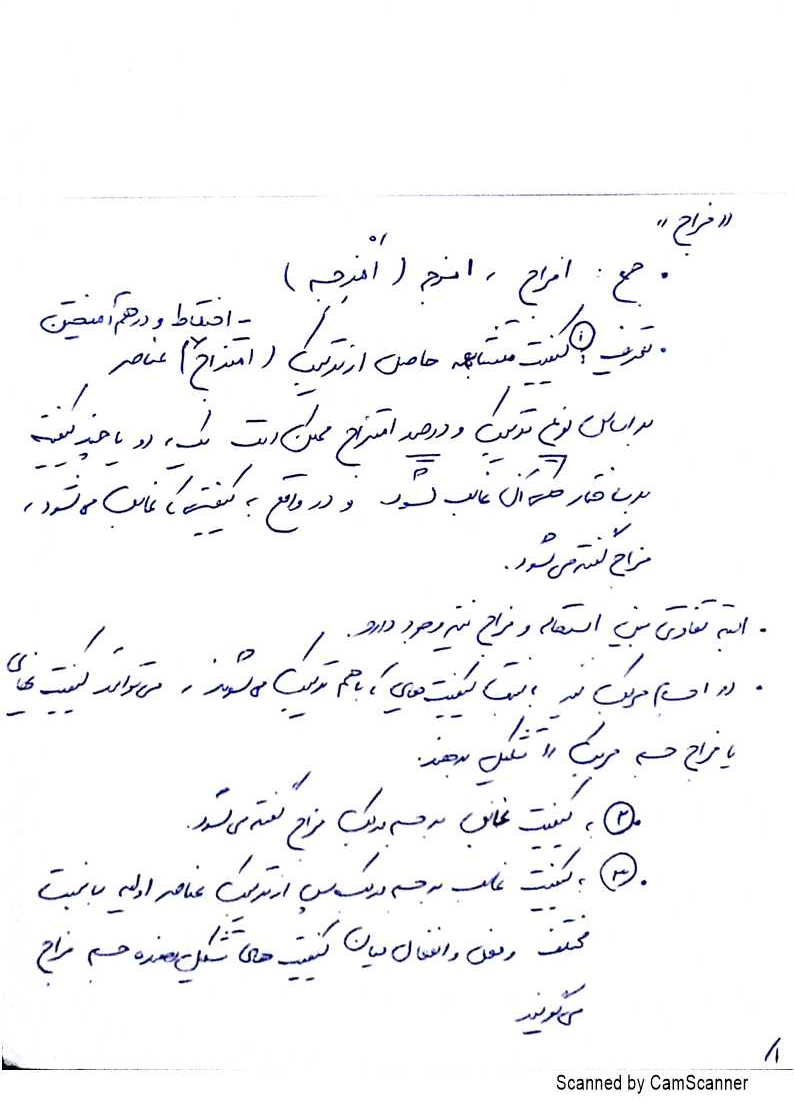 «مزاج»
• جمع : امزاج ، امزجه (اَمْزِجه)
ـ اختلاط و درهم آمیختن
• تعریف : ① کیفیت متشابهه حاصل از ترکیب (امتزاج) عناصر
بر اساس نوع ترکیب و درصد امتزاج ممکن است یک، دو یا چند کیفیت
بر ساختار آن غالب شود و در واقع به کیفیتی که غالب می‌شود،
مزاج گفته می‌شود.
• البته تفاوتی بین استحاله و مزاج نیز وجود دارد.
• در اجسام مرکب نیز کیفیت‌هایی که با هم ترکیب می‌شوند، می‌تواند کیفیت نهایی
یا مزاج جسم مرکب را تشکیل بدهند.
• ② به کیفیت غالب بر جسم مرکب مزاج گفته می‌شود.
• ③ به کیفیت غالب بر جسم مرکب پس از ترکیب عناصر اولیه با نسبت
مختلف و فعل و انفعال میان کیفیت‌های تشکیل‌دهنده جسم مزاج
می‌گویند
۱/
Scanned by CamScanner